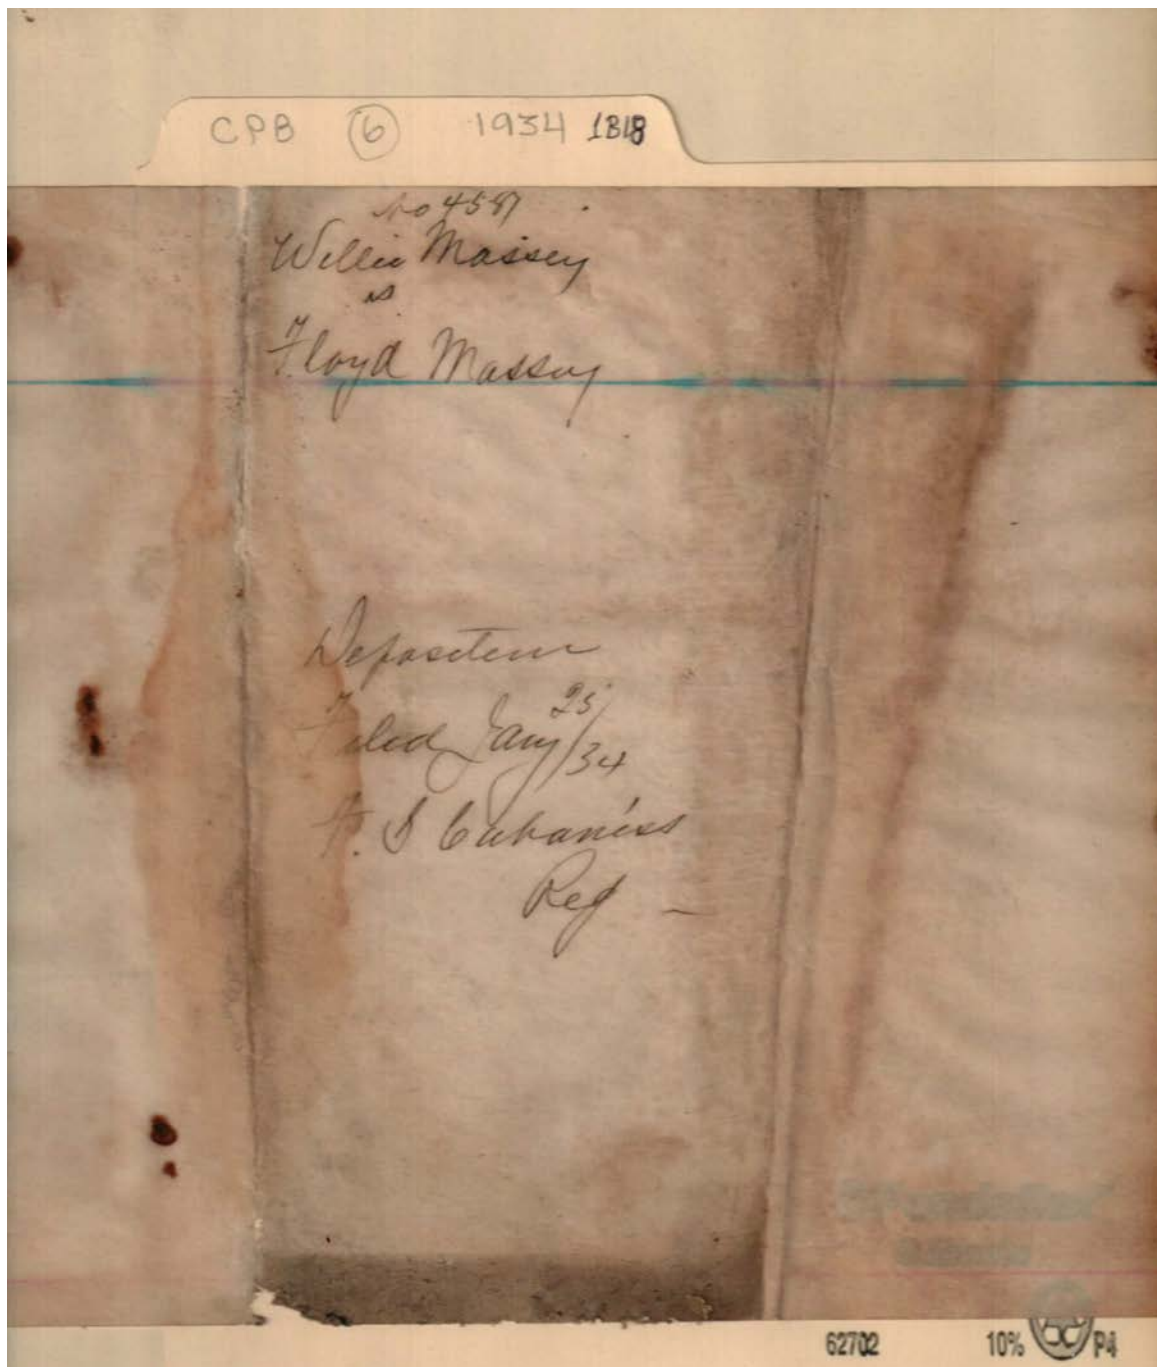 CPB 6 1934 1818
No 4587
Willie Massey
vs
Floyd Massey
Deposition
Filed Jany 25/34
F. S Cabaniss
Reg
62702 10% P4